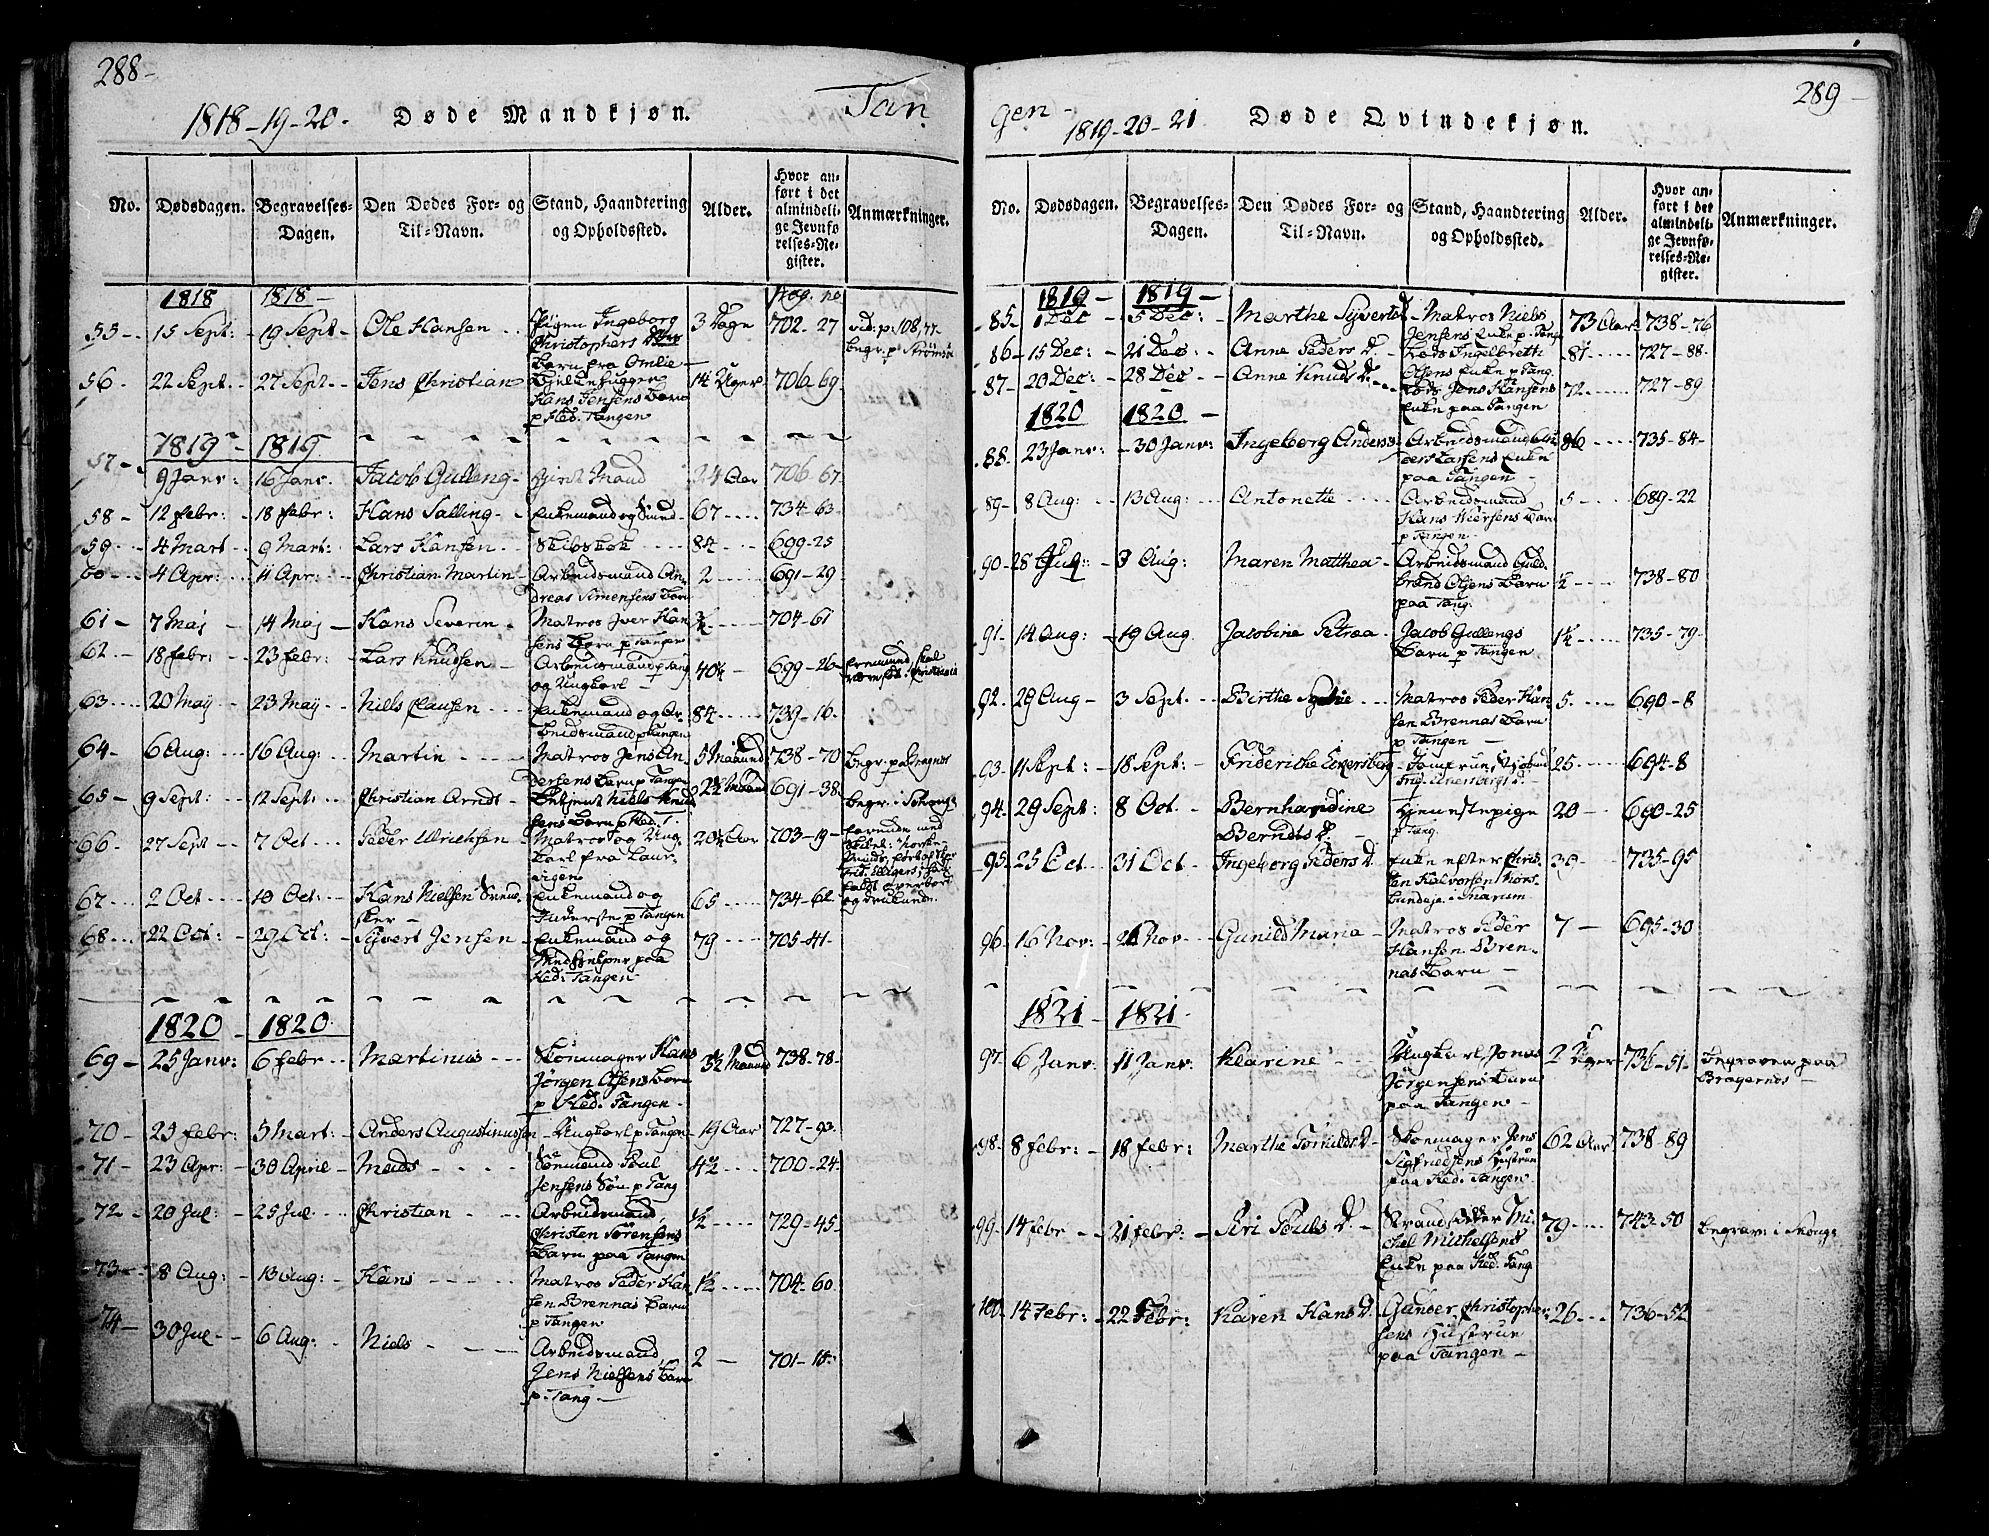 288-
1818-19-20. Døde Mandkjøn. Tan
No. Dødsdagen. Begravelses-Dagen. Den Dødes For- og Til-Navn. Stand, Haandtering og Opholdssted. Alder. Hvor anført i det almindelige Jevnførelses-Register. Anmærkninger.
1818 1818 -
55- 15 Sept: - 19 Sept - Ole Hansen - Pigen Ingeborg Christophers D. Barn fra 3 Dage 702-27 vid: p: 108,
begr. p. Strømsø
56. 22 Sept: - 27 Sept - Jens Christian Hans Jensens Barn p. Hed. Tangen 14 Uger 706-69-
1819 - 1819
57- 9 Janv: 16 Janv. Jacob Gulleng - Givt Mand 24 Aar 706-67-
58- 12 Febr: - 18 Febr: - Hans Salling - Enkemand og 67 --- 734-63-
59- 4 Mart - 9 Mart: Lars Hansen - 84 --- 699-25
60- 4 Apr: - 11 Apr: - Christian Martin - Arbeidsmand Andreas Simensens Barn 2 --- 691-29
61- 7 Maj - 14 Maj - Hans Severin - Matros Iver Hansens Barn p Tangen 704-61
62- 18 Febr: - 23 Febr: - Lars Knudsen - Arbeidsmand p Tang og Ungkarl - 40½ - 699-26-
63- 20 May - 23 May - Niels Clausen - Enkemand og Arbeidsmand p Tangen 84 --- 739-16-
64- 6 Aug: - 16 Aug: - Martin - Matros Jens Andersens Barn p Tangen 5 Maaned 738-70 begr. p. Bragnes
65- 9 Sept: - 12 Sept: - Christian Arndt - Niels Knudsens Barn p Hed. T. 691-38 begr. i
66- 27 Sept - 7 Oct - Peder Ulrichsen Matros og Ungkarl fra Laurvigen 20½ Aar 703-19-
67- 2 Oct - 10 Oct: - Hans Nielsen Enkemand og Inderste p Tangen 65 --- 734-62-
68- 22 Oct: - 29 Oct: - Syvert Jensen - Enkemand og paa Hed: Tangen 79 --- 705-41-
1820 - 1820
69- 25 Janv: 6 Febr - Martinus - Skomager Hans Jörgen Olsens Barn p Hed. Tangen 3½ Maaned 738-78-
70- 25 Febr: 5 Mart: - Anders Augustinussen - Ungkarl p Tangen - 19 Aar 727-93-
71- 23 Apr: - 30 April - Mads - Sømand Poul Jensens Søn p Tang 4½ --- 700-24-
72- 20 Jul: - 25 Jul - Christian - Arbeidsmand Christen Sörensens Barn paa Tangen ½ --- 729-45-
73- 8 Aug: - 13 Aug: - Hans - Matros Peder Hansen Brennas Barn p Tangen 1½ --- 704-60
74- 30 Jul - 6 Aug: - Niels - Arbeidsmand Jens Nielsens Barn p. Tang - 2 - 701-18-
gen - 1819-20-21 Døde Qvindekjøn. 289-
No. Dødsdagen. Begravelses-Dagen. Den Dødes For- og Til-Navn. Stand, Haandtering og Opholdssted. Alder. Hvor anført i det almindelige Jevnførelses-Register. Anmærkninger.
1819 - 1819 -
85- 1 Dec - 5 Dec: - Marthe Syverts D. - Matros Niels Jensens Enke p. Tang 73 Aar 738-76
86- 15 Dec: - 21 Dec: - Anne Peders D. - Lods Ingelbrett Olsens Enke p. Tang. 81 --- 727-88-
87- 20 Dec: - 28 Dec - Anne Knuds D. - Lods Jens Hansens Enke paa Tangen 72 --- 727-89
1820 1820 -
88- 23 Janv: - 30 Janv: Ingeborg Anders - Arbeidsmand Larsens Enke paa Tangen - 86 --- 735-84-
89- 8 Aug: - 13 Aug: - Antonette - Arbeidsmand Hans Barn p Tangen 5 --- 689-22
90- 28 Jul: - 3 Aug: Maren Matthea - Arbeidsmand Guldbrand Olsens Barn paa Tang: ½ --- 738-80
91- 14 Aug: - 19 Aug Jacobine Petræa - Jacob Gullengs Barn p Tangen 1½ --- 735-79-
92- 29 Aug - 3 Sept: - Birthe - Matros Peder Hansen Brennas Barn p Tangen - 5 --- 690-8
93- 11 Sept: - 18 Sept: - Frideriche - Jomfrue 25 --- 694-8
94- 29 Sept: 8 Oct - Bernhardine Berndts D. - Tjenestepige p Tang. 20 - 690-25
95- 25 Oct - 31 Oct - Ingeborg Peders D. Enke efter Christen Halvorsen 30 - 735-95
96- 16 Nov: - 21 Nov - Gunild Maria - Matros Peder Hansen Brennas Barn - 7 - 695-30
1821 - 1821
97- 6 Janv: 11 Janv: Klarine - Ungkarl Jonas Jörgensens Barn paa Tangen - 2 Uger 736-51- Begraven paa Bragernes -
98- 8 Febr: - 18 Febr: Marthe D. - Skomager Jens Sigfriedsens Hustrue paa Hed. Tangen 62 Aar 738-89
99- 14 Febr - 21 Febr: - Siri Pouls D. - Michel Michelsens Enke paa Hed. Tang 79 --- 743-50 Begrav: i
100- 14 Febr: - 22 Febr: Karen Hans D. Gunder Christophersens Hustrue paa Tangen - 26 --- 736-52